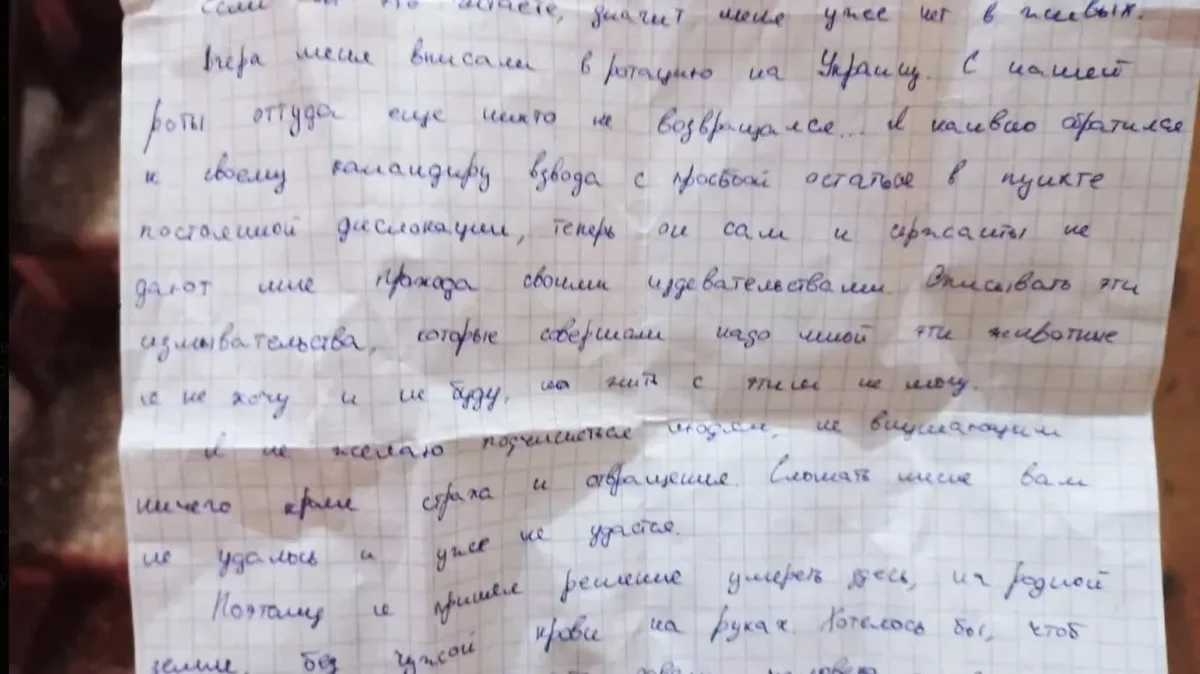 Если вы это читаете, значит меня уже нет в живых.
Вчера меня вписали в ротацию на Украину. С нашей
роты оттуда еще никто не возвращался... Я наивно обратился
к своему командиру взвода с просьбой остаться в пункте
постоянной дислокации, теперь он сам и сержанты не
дают мне прохода своими издевательствами. Описывать эти
измывательства, которые совершали надо мной эти животные
я не хочу и не буду, но жить с этим не могу.
Я не желаю подчиняться людям, не внушающим
ничего кроме страха и отвращения. Сломать меня вам
не удалось и уже не удастся.
Поэтому я принял решение умереть здесь, на родной
земле, без чужой крови на руках. Хотелось бы, чтоб